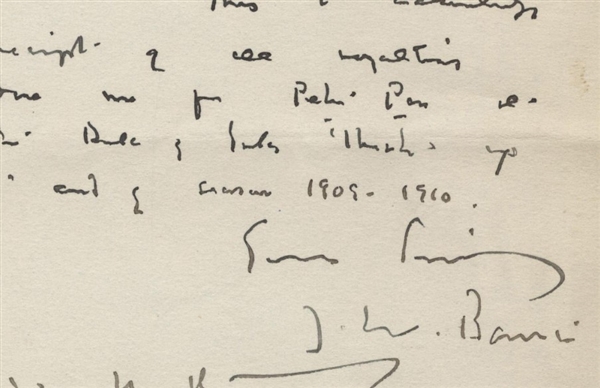 This is to acknowledge
receipt of all royalties
me for Peter Pan
Duke of York's Theatre up
end of season 1909-1910.
Yours Sincerely
J. M. Barrie